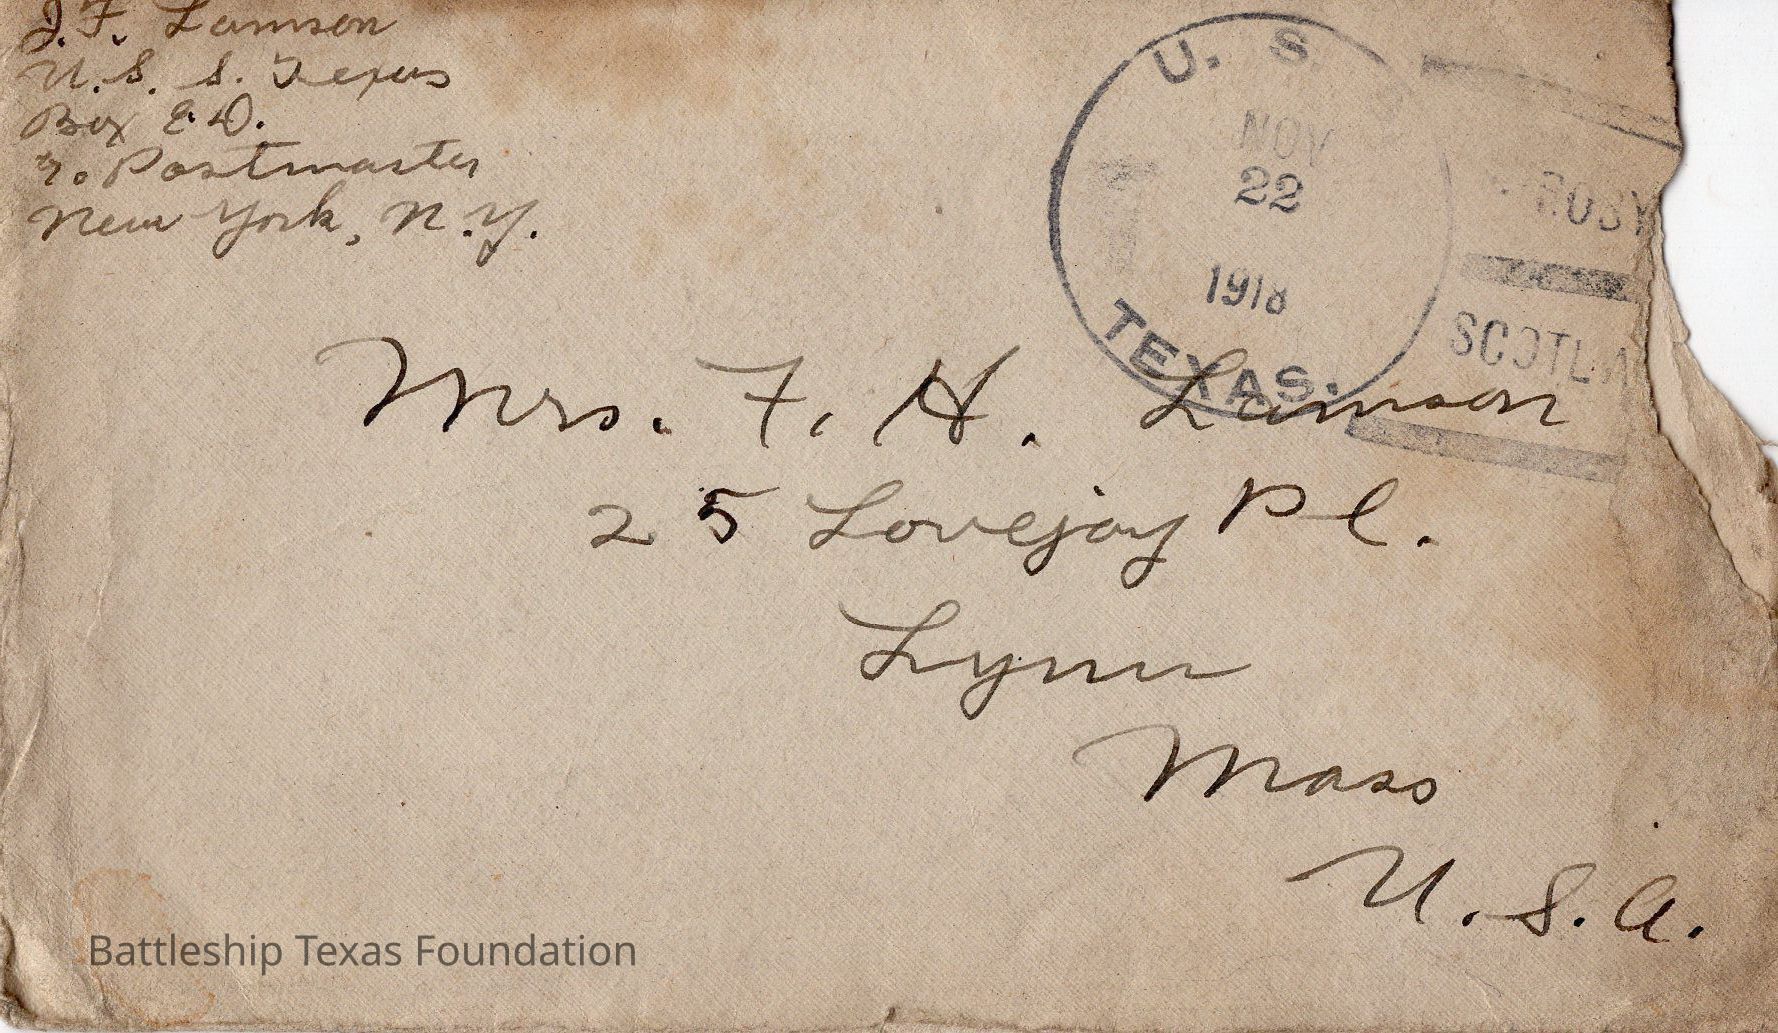 J. F. Lamson
U. S. S. Texas
Box E. D.
Postmaster
New York, N.Y.
U. S. S.
NOV
22
1918
TEXAS.
ROSY
SCOTLA
Mrs. F. H. Lamson
25 Lovejoy Pl.
Lynn
Mass
U. S. A.
Battleship Texas Foundation